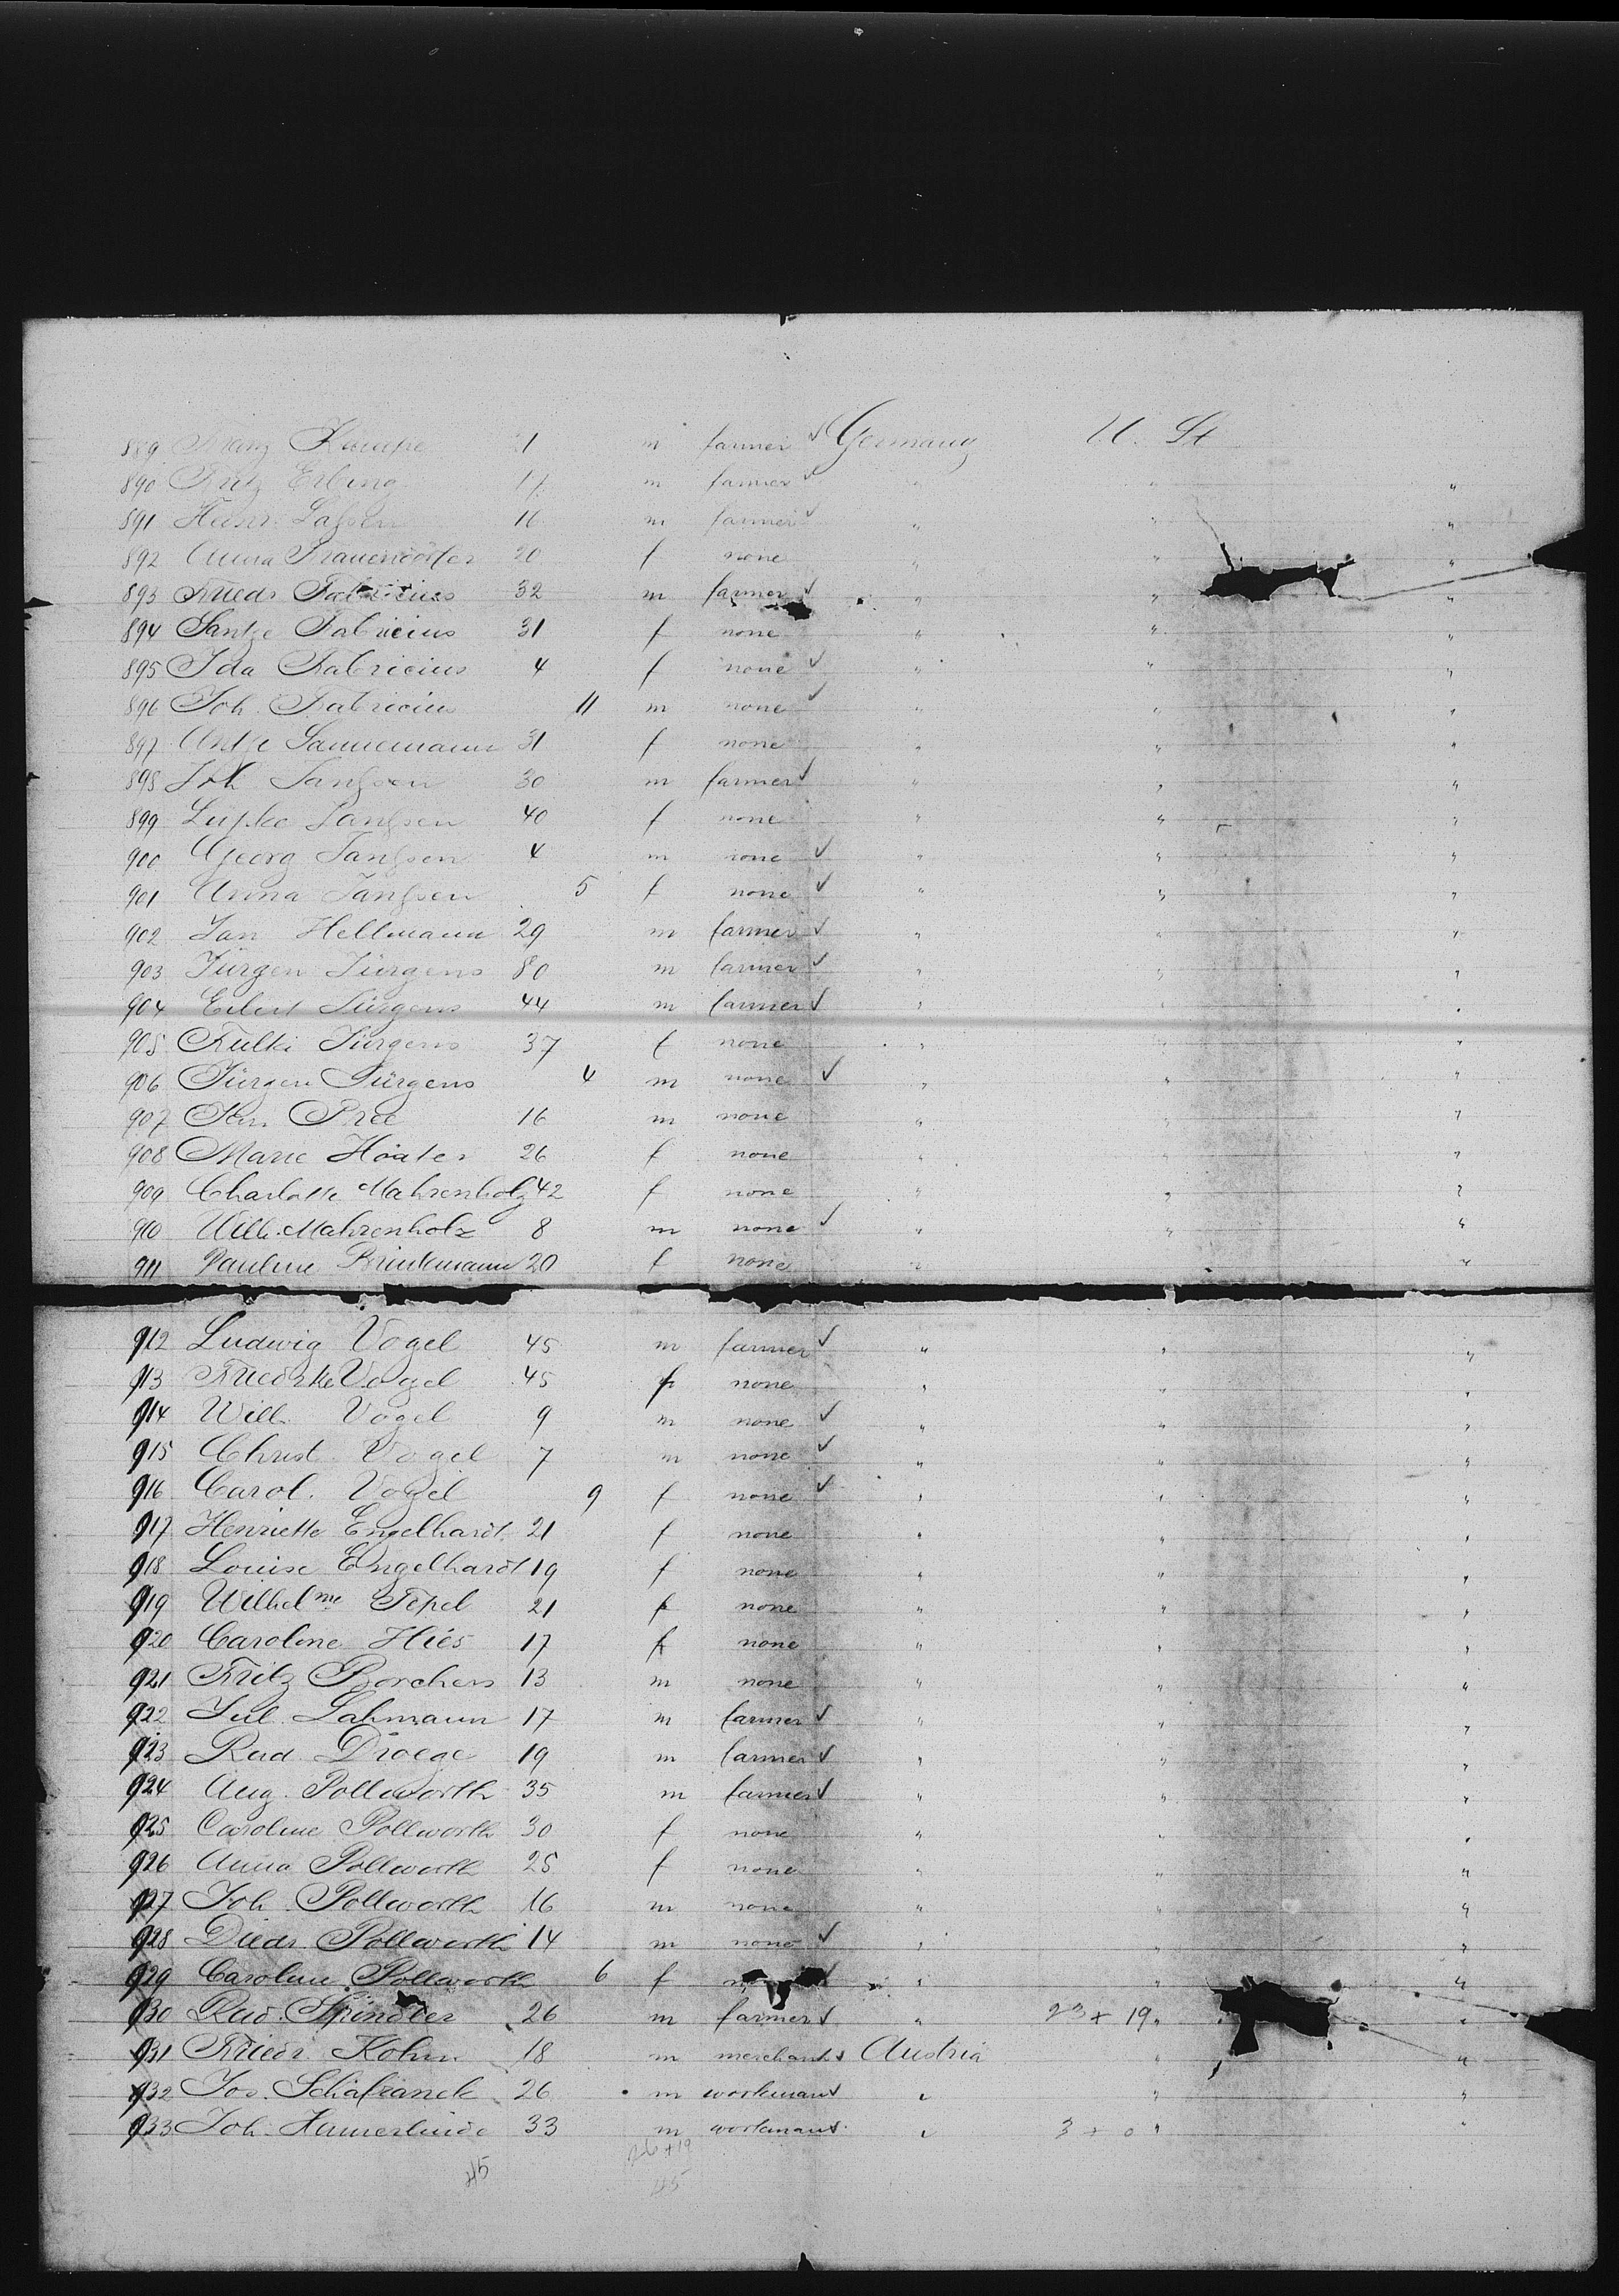 889 Franz 21 m farmer ✓ Germany U. St
890 Fritz Erling 17 m farmer ✓ " " "
891 Heinr. Lahsen 16 m farmer ✓ " " "
892 Anna 20 f none " " "
893 Friedr Fabricius 32 m farmer ✓ " " "
894 Fabricius 31 f none " " "
895 Ida Fabricius 4 f none ✓ " " "
896 Joh. Fabricius 11 m none ✓ " " "
897 Antje Sannemann 31 f none " " "
898 Joh Janssen 30 m farmer ✓ " " "
899 Janssen 40 f none " " "
900 Georg Janssen 4 m none ✓ " " "
901 Anna Janssen 5 f none ✓ " " "
902 Jan Hellmann 29 m farmer ✓ " " "
903 Jürgen Jürgens 80 m farmer ✓ " " "
904 Eilert Jürgens 44 m farmer ✓ " " "
905 Jürgens 37 f none " " "
906 Jürgen Jürgens 4 m none ✓ " " "
907 16 m none " " "
908 Marie 26 f none " " "
909 Charlotte Mahrenholz 42 f none " " "
910 Willh. Mahrenholz 8 m none ✓ " " "
911 Pauline Brinkmann 20 f none " "
912 Ludwig Vogel 45 m farmer ✓ " " "
913 Friedrke Vogel 45 f none " " "
914 Willh. Vogel 9 m none ✓ " " "
915 Christ. Vogel 7 m none ✓ " " "
916 Carol. Vogel 9 f none ✓ " " "
917 Henriette Engelhardt 21 f none " " "
918 Louise Engelhardt 19 f none " " "
919 Wilhelme Tepel 21 f none " " "
920 Caroline Hies 17 f none " " "
921 Fritz Borchers 13 m none " " "
922 Jul. Lahmann 17 m farmer ✓ " " "
923 Rud. Droege 19 m farmer ✓ " " "
924 Aug. Pollworth 35 m farmer ✓ " " "
925 Caroline Pollworth 30 f none " " "
926 Anna Pollworth 25 f none " " "
927 Joh. Pollworth 16 m none " " "
928 Diedr. Pollworth 14 m none ✓ " " "
929 Caroline Pollworth 6 f ✓ " " "
930 Rud. Spindler 26 m farmer ✓ " 23 + 19 " "
931 Friedr. Kohn 18 m merchant ✓ Austria " "
932 Jos. Schafranek 26 m workman ✓ " " "
933 Joh. Hamerlinde 33 m workman ✓ " 3 + 0 " "
45 26+19
45